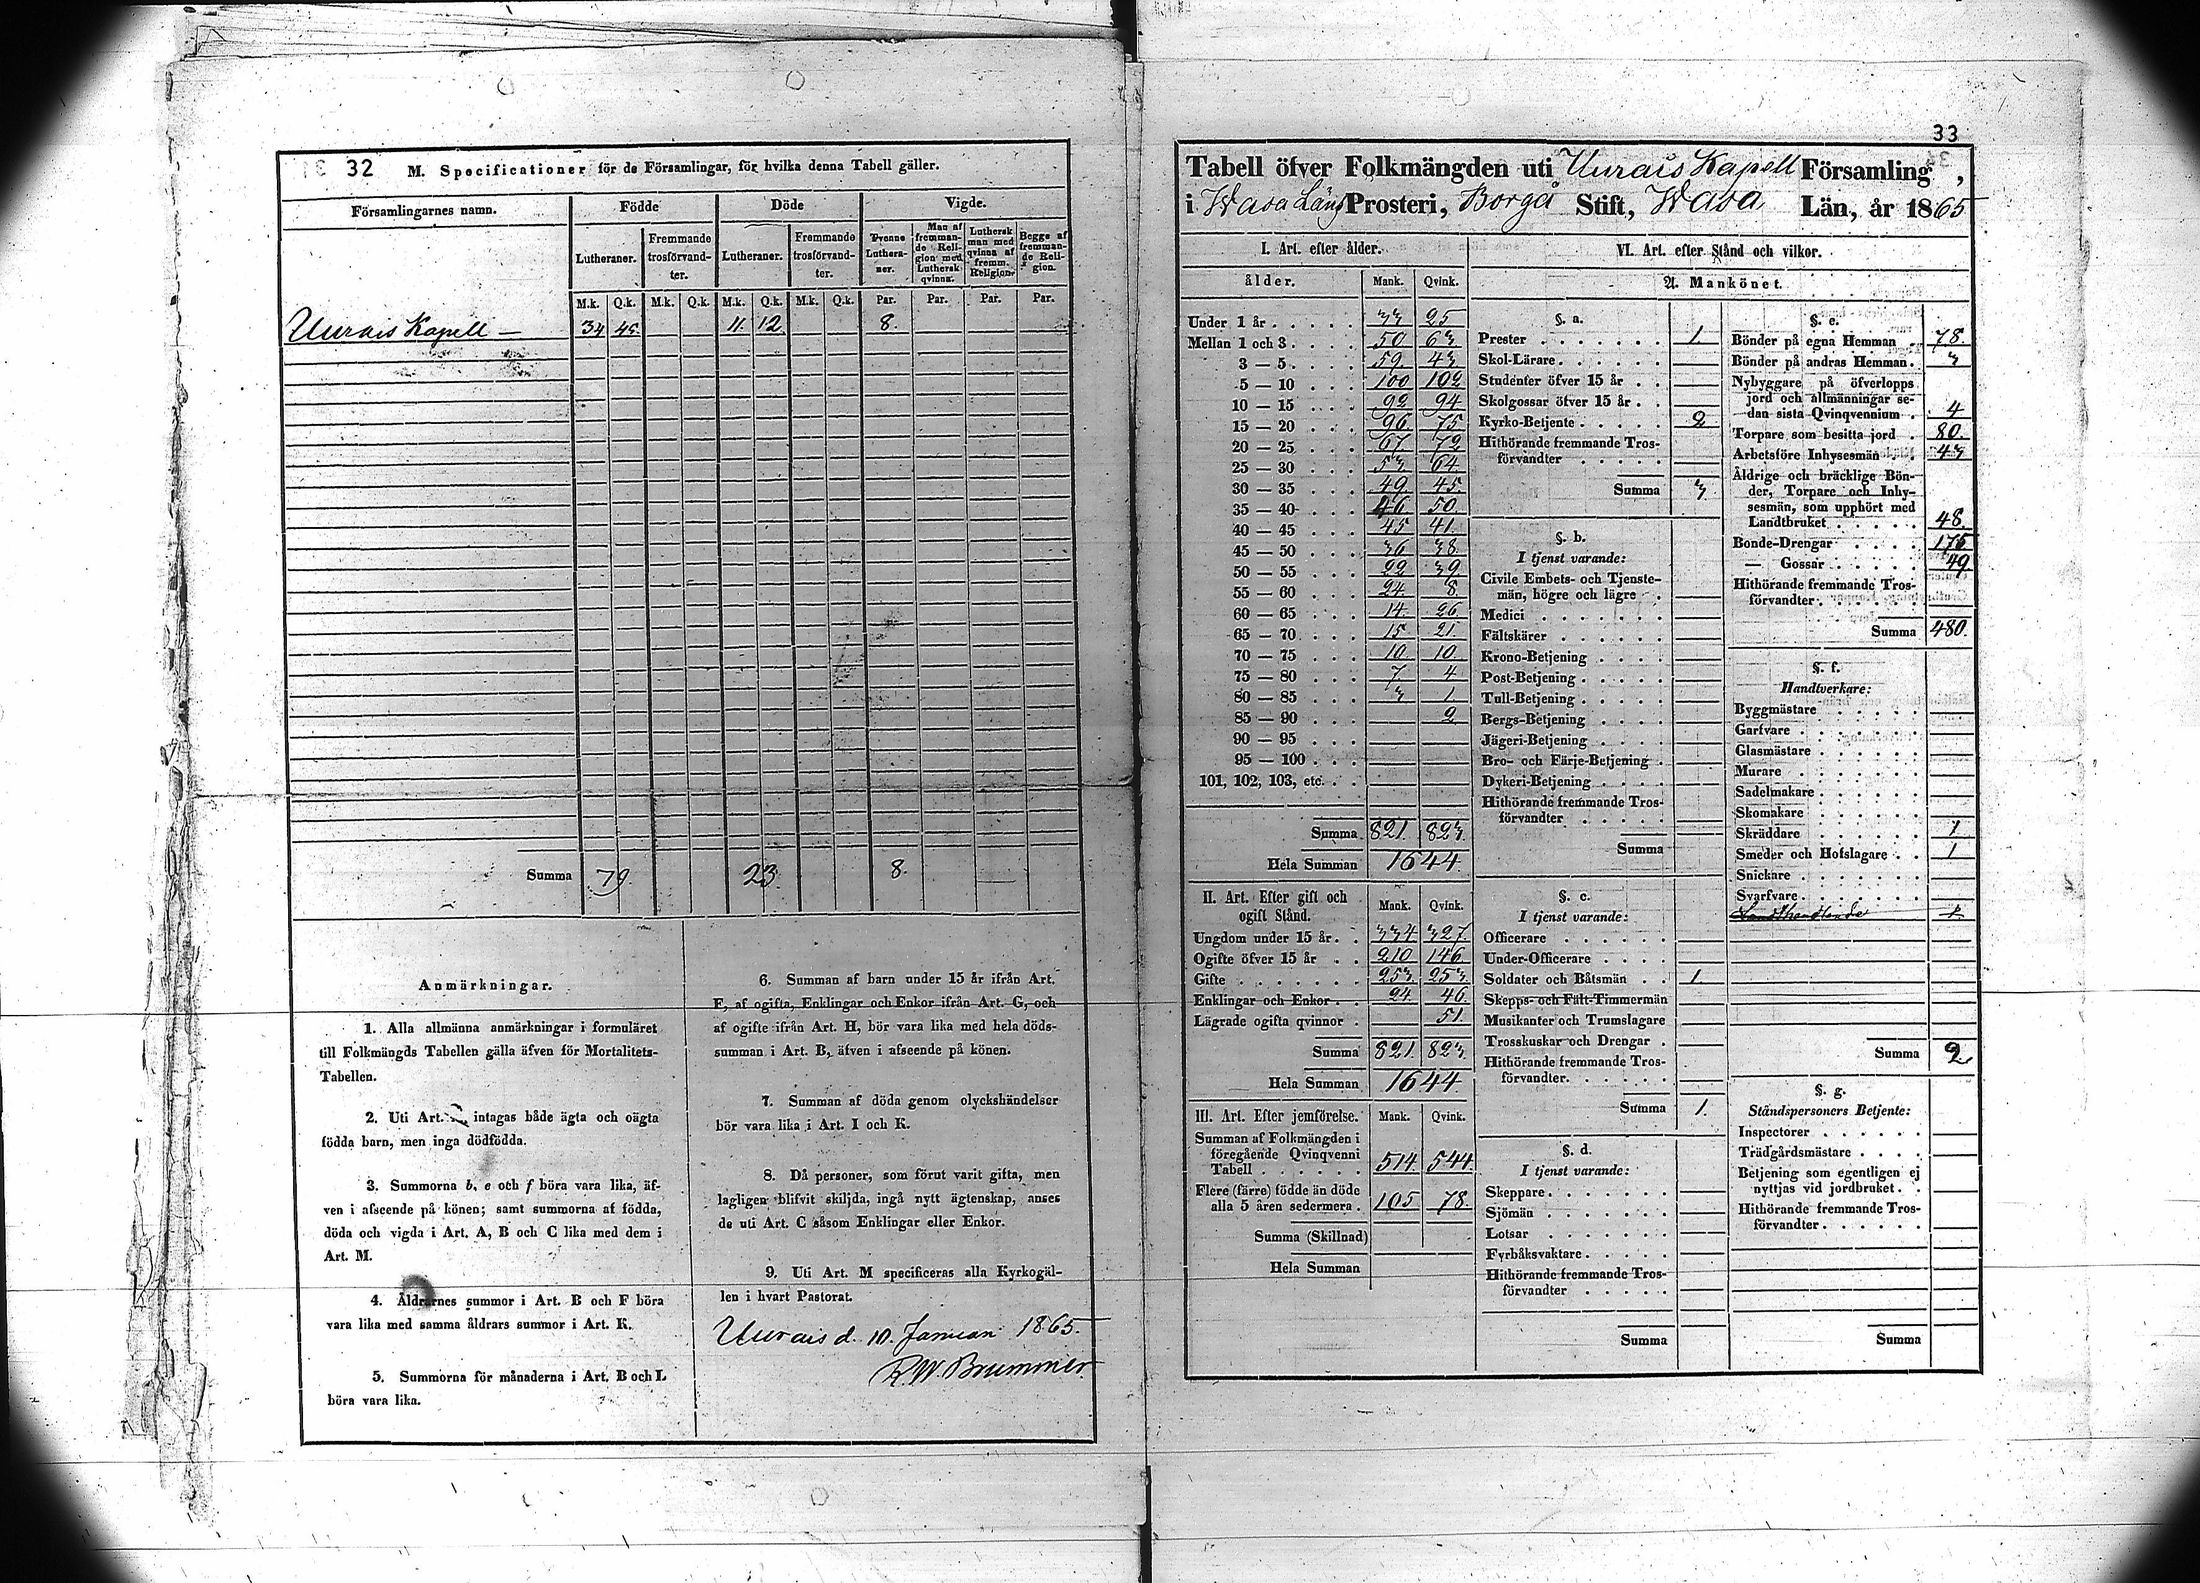 32 M. Specificationer för de Församlingar, för hvilka denna Tabell gäller.
Församlingarnes namn. Födde Döde Vigde.
Lutheraner. Fremmande trosförvandter. Lutheraner. Fremmande trosförvandter. Tvenne Lutheraner. Man af fremmande Religion med Luthersk qvinna. Luthersk man med qvinna af fremm. Religion. Begge af fremmande Religion.
M.k. Q.k. M.k. Q.k. M.k. Q.k. M.k. Q.k. Par. Par. Par. Par.
Uurais Kapell — 34 45. 11. 12. 8.
Summa 79. 23. 8.
Anmärkningar.
1. Alla allmänna anmärkningar i formuläret
till Folkmängds Tabellen gälla äfven för Mortalitets-
Tabellen.
2. Uti Art. intagas både ägta och oägta
födda barn, men inga dödfödda.
3. Summorna b, e och f böra vara lika, äf-
ven i afseende på könen; samt summorna af födda,
döda och vigda i Art. A, B och C lika med dem i
Art. M.
4. Åldrarnes summor i Art. B och F böra
vara lika med samma åldrars summor i Art. K.
5. Summorna för månaderna i Art. B och L
böra vara lika.
6. Summan af barn under 15 år ifrån Art.
F, af ogifta, Enklingar och Enkor ifrån Art. G, och
af ogifte ifrån Art. H, bör vara lika med hela döds-
summan i Art. B, äfven i afseende på könen.
7. Summan af döda genom olyckshändelser
bör vara lika i Art. I och K.
8. Då personer, som förut varit gifta, men
lagligen blifvit skiljda, ingå nytt ägtenskap, anses
de uti Art. C såsom Enklingar eller Enkor.
9. Uti Art. M specificeras alla Kyrkogäl-
len i hvart Pastorat.
Uurais d. 10. Januari 1865.
R.W. Brummer.
33
Tabell öfver Folkmängden uti Uurais Kapell Församling,
i Wasa Läns Prosteri, Borgå Stift, Wasa Län, år 1865
I. Art. efter ålder.
ålder. Mank. Qvink.
Under 1 år 33 25
Mellan 1 och 3 50 63
3 — 5 59. 43
5 — 10 100 102
10 — 15 92 94
15 — 20 96 75
20 — 25 67. 72
25 — 30 53 64
30 — 35 49. 45.
35 — 40 46 50.
40 — 45 45 41.
45 — 50 36 38.
50 — 55 22 39
55 — 60 24. 8.
60 — 65 14. 26
65 — 70 15 21.
70 — 75 10 10.
75 — 80 7. 4
80 — 85 3 1
85 — 90 2
90 — 95
95 — 100
101, 102, 103, etc.
Summa 821. 823.
Hela Summan 1644.
II. Art. Efter gift och
ogift Stånd. Mank. Qvink.
Ungdom under 15 år 334 327.
Ogifte öfver 15 år 210 146
Gifte 253. 253.
Enklingar och Enkor 24. 46
Lägrade ogifta qvinnor 51.
Summa 821. 823.
Hela Summan 1644
III. Art. Efter jemförelse. Mank. Qvink.
Summan af Folkmängden i
föregående Qvinqvenni
Tabell 514. 544.
Flere (färre) födde än döde
alla 5 åren sedermera 105 78.
Summa (Skillnad)
Hela Summan
VI. Art. efter Stånd och vilkor.
A. Mankönet.
§. a.
Prester 1.
Skol-Lärare
Studenter öfver 15 år
Skolgossar öfver 15 år
Kyrko-Betjente 2
Hithörande fremmande Tros-
förvandter
Summa 3.
§. b.
I tjenst varande:
Civile Embets- och Tjenste-
män, högre och lägre
Medici
Fältskärer
Krono-Betjening
Post-Betjening
Tull-Betjening
Bergs-Betjening
Jägeri-Betjening
Bro- och Färje-Betjening
Dykeri-Betjening
Hithörande fremmande Tros-
förvandter
Summa
§. c.
I tjenst varande:
Officerare
Under-Officerare
Soldater och Båtsmän 1.
Skepps- och Fält-Timmermän
Musikanter och Trumslagare
Trosskuskar och Drengar
Hithörande fremmande Tros-
förvandter.
Summa 1.
§. d.
I tjenst varande:
Skeppare
Sjömän
Lotsar
Fyrbåksvaktare
Hithörande fremmande Tros-
förvandter
Summa
§. e.
Bönder på egna Hemman 78.
Bönder på andras Hemman 3
Nybyggare på öfverlopps
jord och allmänningar se-
dan sista Qvinqvennium 4
Torpare som besitta jord 80.
Arbetsföre Inhysesmän 43
Åldrige och bräcklige Bön-
der, Torpare och Inhy-
sesmän, som upphört med
Landtbruket 48.
Bonde-Drengar 175
— Gossar 49
Hithörande fremmande Tros-
förvandter
Summa 480.
§. f.
Handtverkare:
Byggmästare
Garfvare
Glasmästare
Murare
Sadelmakare
Skomakare
Skräddare 1
Smeder och Hofslagare 1
Snickare
Svarfvare
Landthandlande 1
Summa 2
§. g.
Ståndspersoners Betjente:
Inspectorer
Trädgårdsmästare
Betjening som egentligen ej
nyttjas vid jordbruket
Hithörande fremmande Tros-
förvandter
Summa